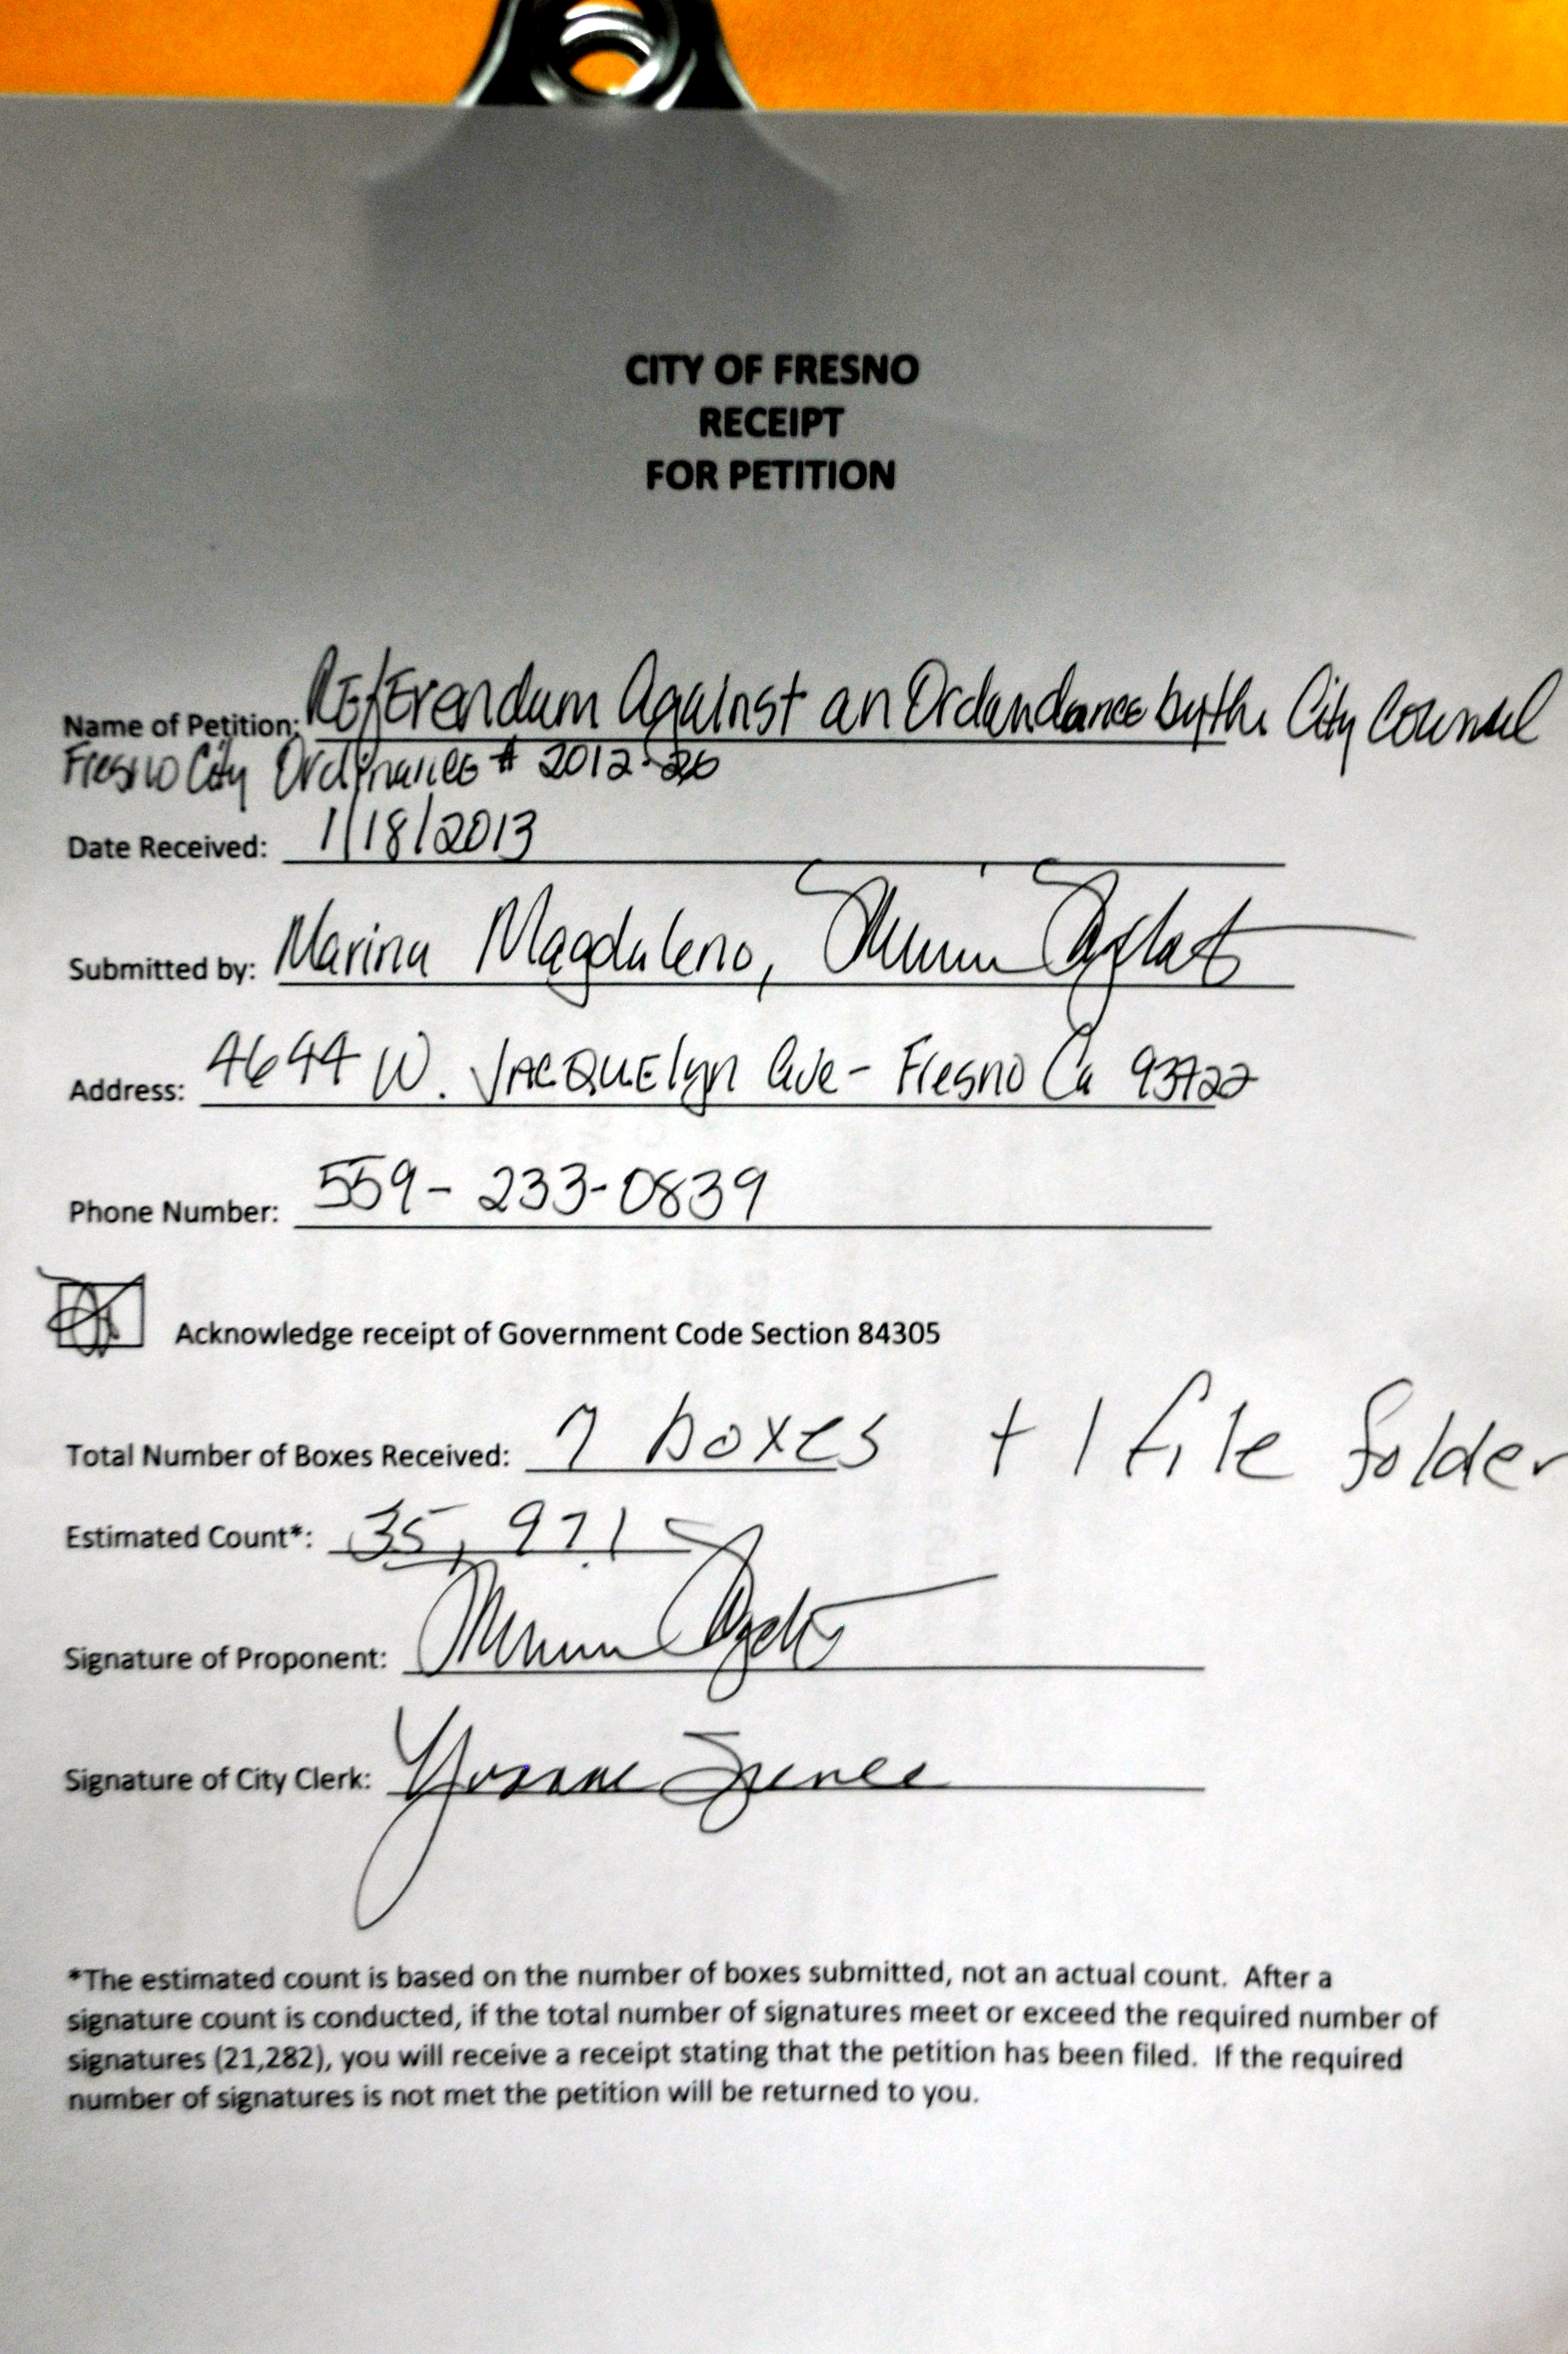 CITY OF FRESNO
RECEIPT
FOR PETITION
Name of Petition: Referendum Against an Ordandance by the City Counsel
Fresno City Ordinance # 2012-26
Date Received: 1/18/2013
Submitted by: Marina Magdaleno,
Address: 4644 W. Jacquelyn Ave - Fresno Ca 93722
Phone Number: 559-233-0839
Acknowledge receipt of Government Code Section 84305
Total Number of Boxes Received: 7 boxes + 1 file folder
Estimated Count*: 35,971
Signature of Proponent:
Signature of City Clerk: Yvonne Spence
*The estimated count is based on the number of boxes submitted, not an actual count. After a
signature count is conducted, if the total number of signatures meet or exceed the required number of
signatures (21,282), you will receive a receipt stating that the petition has been filed. If the required
number of signatures is not met the petition will be returned to you.